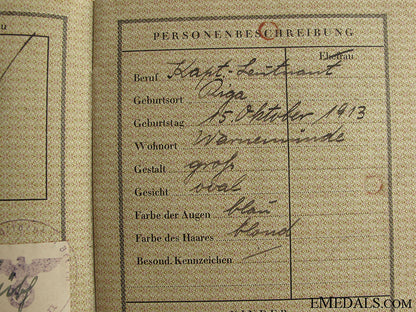 PERSONENBESCHREIBUNG
Ehefrau
Beruf Kapt.-Leutnant
Geburtsort Riga
Geburtstag 15. Oktober 1913
Wohnort Warnemünde
Gestalt groß
Gesicht oval
Farbe der Augen blau
Farbe des Haares blond
Besond. Kennzeichen
KINDER
EMEDALS.com